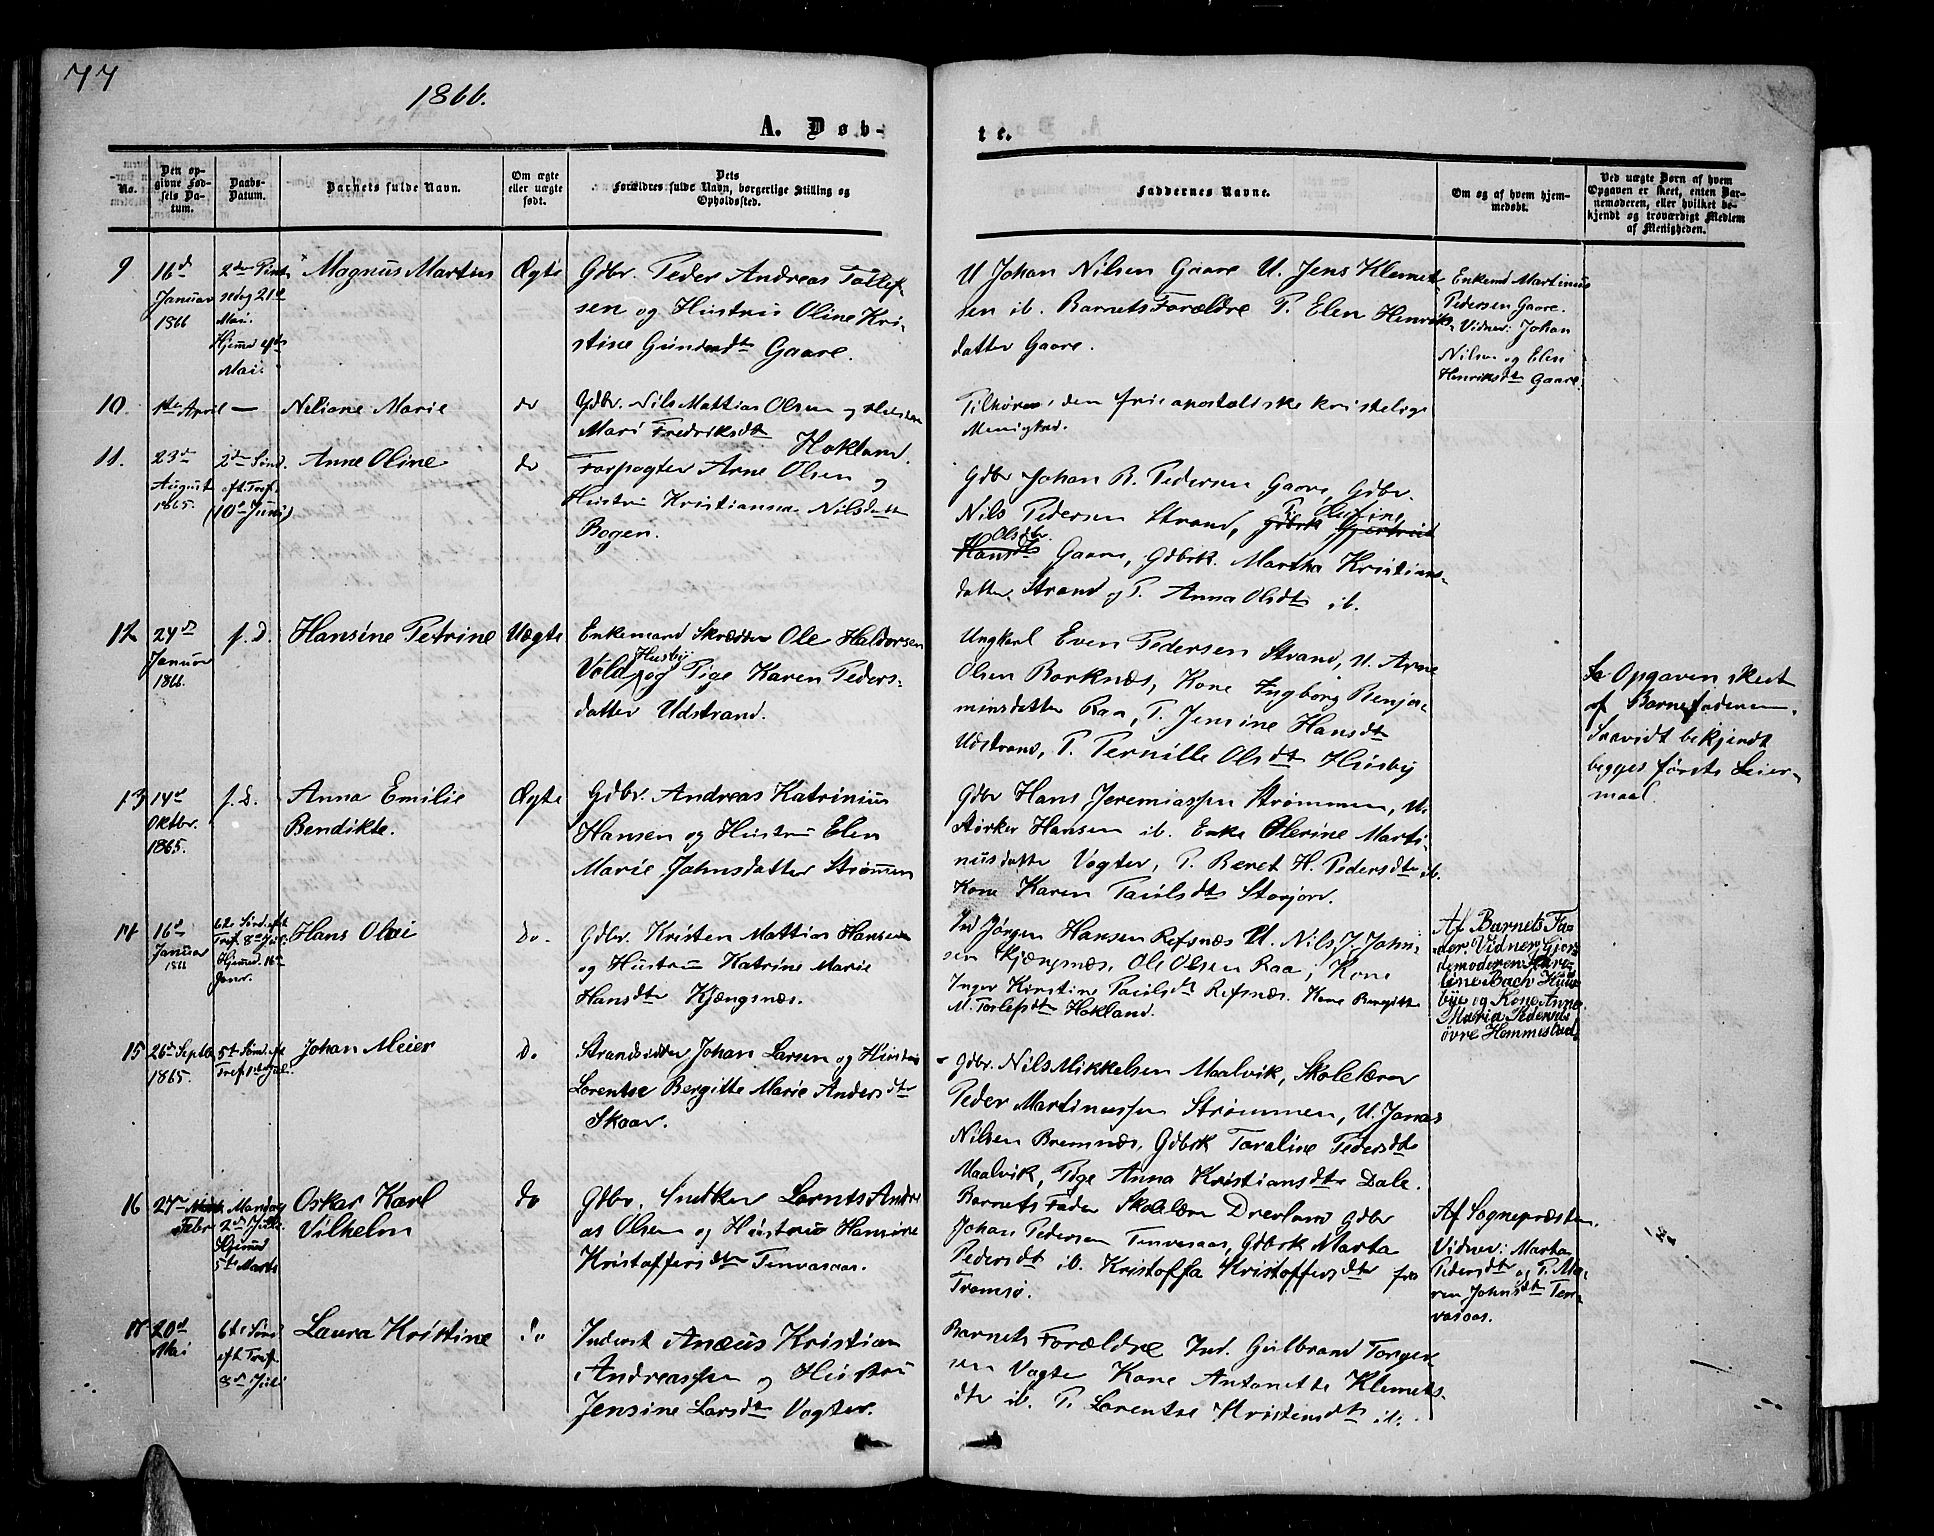 77
1866.
A. Døb-
te.
No.
Den op-
givne Fød-
sels Da-
tum.
Daabs-
Datum.
Barnets fulde Navn.
Om ægte
eller uægte
født.
Dets
Forældres fulde Navn, borgerlige Stilling og
Opholdssted.
Faddernes Navne.
Om og af hvem hjem-
medøbt.
Ved uægte Børn af hvem
Opgaven er skeet, enten Bar-
nemoderen, eller hvilket be-
kjendt og troværdigt Medlem
af Menigheden.
9
16d
Januar
1866
2den Pint-
sedag 21de
Mai.
Hjemmed
Mai.
Magnus Martin
Ægte
Gdbr. Peder Andreas Tollef-
sen og Hustru Oline Kri-
stine Gundersdtr Gaare.
U Johan Nilsen Gaare U. Jens Klemet-
sen ib. Barnets Forældre P. Elen Henriks-
datter Gaare.
Enkemd Martinus
Pedersen Gaare.
Vidner: Johan
Nilsen og Elen
Henriksdtr Gaare.
10.
1ste April
—
Neliane Marie
do
Gdbr. Nils Mattias Olsen og Hustru
Mari Fredriksdtr Hokland.
Tilhører den frie apostoliske kristelige
Menighed.
11.
23de
August
1865.
2den Sønd.
eft. Tref.
(10de Juni)
Anne Oline
do
Forpagter Arne Olsen og
Hustru Kristianna Nilsdatter
Bogen.
Gdbr Johan R. Pedersen Gaare, Gdbr.
Nils Pedersen Strand, Gdbrk Gjertrud
P. Olufine
Hansdtr Olsdtr. Gaare, Gdbrk. Martha Kristians-
datter Strand og P. Anna Olsdtr ib.
12
24de
Januar
1866.
f. d.
Hansine Petrine
Uægte
Enkemand Skrædder Ole Haldorsen
Vold Husby og Pige Karen Peders-
datter Udstrand.
Ungkarl Even Pedersen Strand, U. Arne
Olsen Borknæs, Kone Ingborg Benja-
minsdatter Raa, P. Jensine Hansdtr
Udstrand, P. Pernille Olsdtr Husby
Opgaven skeet
af Barnefaderen.
Saavidt bekjendt
begges første Leier-
maal.
13
14de
Oktbr.
1865.
f. d.
Anna Emilie
Bendikte.
Ægte
Gdbr. Andreas Katrinius
Hansen og Hustru Elen
Marie Johnsdatter Strømmen
Gdbr Hans Jeremiassen Strømmen, U.
Størker Hansen ib. Enke Olerine Marti-
nusdatter Vogter, P. Beret H. Pedersdtr ib.
Kone Karen Paulsdtr Storjor.
14
16de
Januar
1866
6te Sønd. eft
Tref. 8de Juli.
Hjemmed. 16de
Janr.
Hans Olai
do.
Gdbr. Kristen Mattias Hansen
og Hustru Katrine Marie
Hansdtr Kjængsnæs.
Ind Jørgen Hansen Refsnæs U. Nils J. John-
sen Kjængsnæs, Ole Olsen Raa, Kone
Inger Kirstine Paulsdtr Refsnæs. Kone Bergitte
M. Torlefsdtr Hokland.
Af Barnets Fa-
der. Vidner Gjor-
demoderen
Bach Hus-
bye og Kone Anne
Maria Pedersdtr
øvre Hemmestad.
15
26de Septbr
1865.
5te Sønd. eft
Tref 1ste Jul.
Johan Meier
do
Strandsidder Johan Larsen og Hustru
Lorentse Bergitte Marie Andersdtr
Skaar.
Gdbr. Nils Mikkelsen Maalvik, Skolelærer
Peder Martinussen Strømmen, U. Jonas
Nilsen Bremnæs, Gdbrk Taraline Pedersdtr
Maalvik, Pige Anna Kristiansdtr Dale.
16
27de
Febr
Mandag
2den Juli.
Hjemmed
5te Marts
Oskar Karl
Vilhelm
do
Gdbr. Snedker Lornts Andre
as Olsen og Hustru Hansine
Kristoffersdtr Tenvasaas.
Barnets Fader Skolelærer Drevland Gdbr
Johan Pedersen Tenvasaas, Gdbrk Marta
Pedersdtr ib. Kristoffa Kristoffersdtr fra
Tromsø.
Af Sognepræsten.
Vidner: Marta
Pedersdtr og P. Ma-
ren Johnsdtr Ten-
vasaas.
17
20de
Mai
6te Sønd
eft Tref.
8de Juli
Laura Kristine
do
Inderst Anæus Kristian
Andreassen og Hustru
Jensine Larsdtr Vogter.
Barnets Forældre Ind. Gulbrand Torger-
sen Vogter Kone Antonette Klemets-
dtr ib. P. Lorentse Kristensdtr ib.